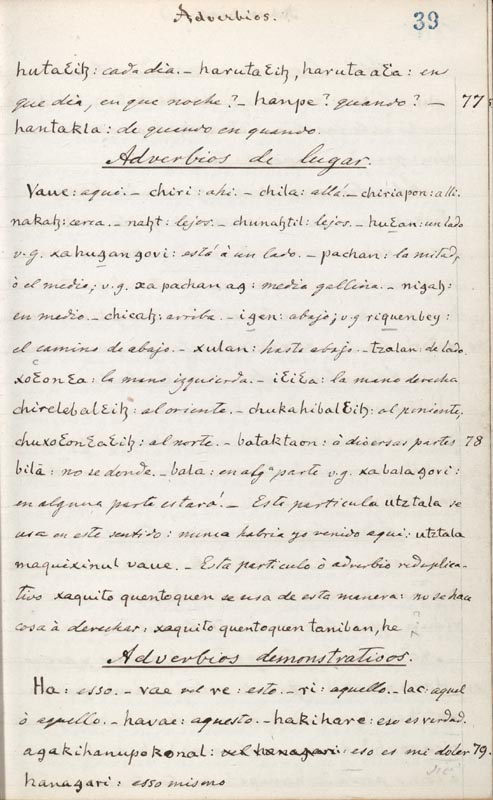 Adverbios. 39
hutaꜪiꜧ: cada dia. – harutaꜪiꜧ, haruta aꜪa: en
que dia, en que noche? – hanpe? quando? – 77
hantakla: de quando en quando.
Adverbios de lugar.
Vaue: aqui. – chiri: ahi. – chila: allá. – chiriapon: alli.
nakaꜧ: cerca. – naꜧt: lejos. – chunaꜧtil: lejos. – huꜪan: un lado
v.g. xahugan govi: está à un lado. – pachan: la mitad,
ò el medio; v.g. xa pachan ag: media gallina. – nigaꜧ:
en medio. – chicaꜧ: arriba. – igen: abajo; v.g riquenbey:
el camino de abajo. – xulan: hasta abajo. – tzalan: de lado.
xoꜪonꜪa: la mano izquierda. – iꜪiꜪa: la mano derecha
chirelebalꜪiꜧ: al oriente. – chukahibalꜪiꜧ: al poniente,
chuxoꜪonꜪaꜪiꜧ: al norte. – bataktaon: ò diversas partes 78
bilà: no se donde. – bala: en algª parte v.g. xabalagovi:
en alguna parte estará. – Esta particula utztala se
usa en este sentido: nunca habria yo venido aqui: utztala
maquixinul vaue. – Esta particula ò adverbio reduplica-
tivo xaquito quentoquen se usa de esta manera: no se hace
cosa à derechas: xaquito quentoquen taniban, he
Adverbios demonstrativos.
Ha: esso. – vae vel re: esto. – ri: aquello. – lac: aquel
ò aquello. – havae: aquesto. – hakihare: eso es verdad.
agakihanupokonal: vel hanagari: eso es mi dolor 79.
hanagari: esso mismo sic